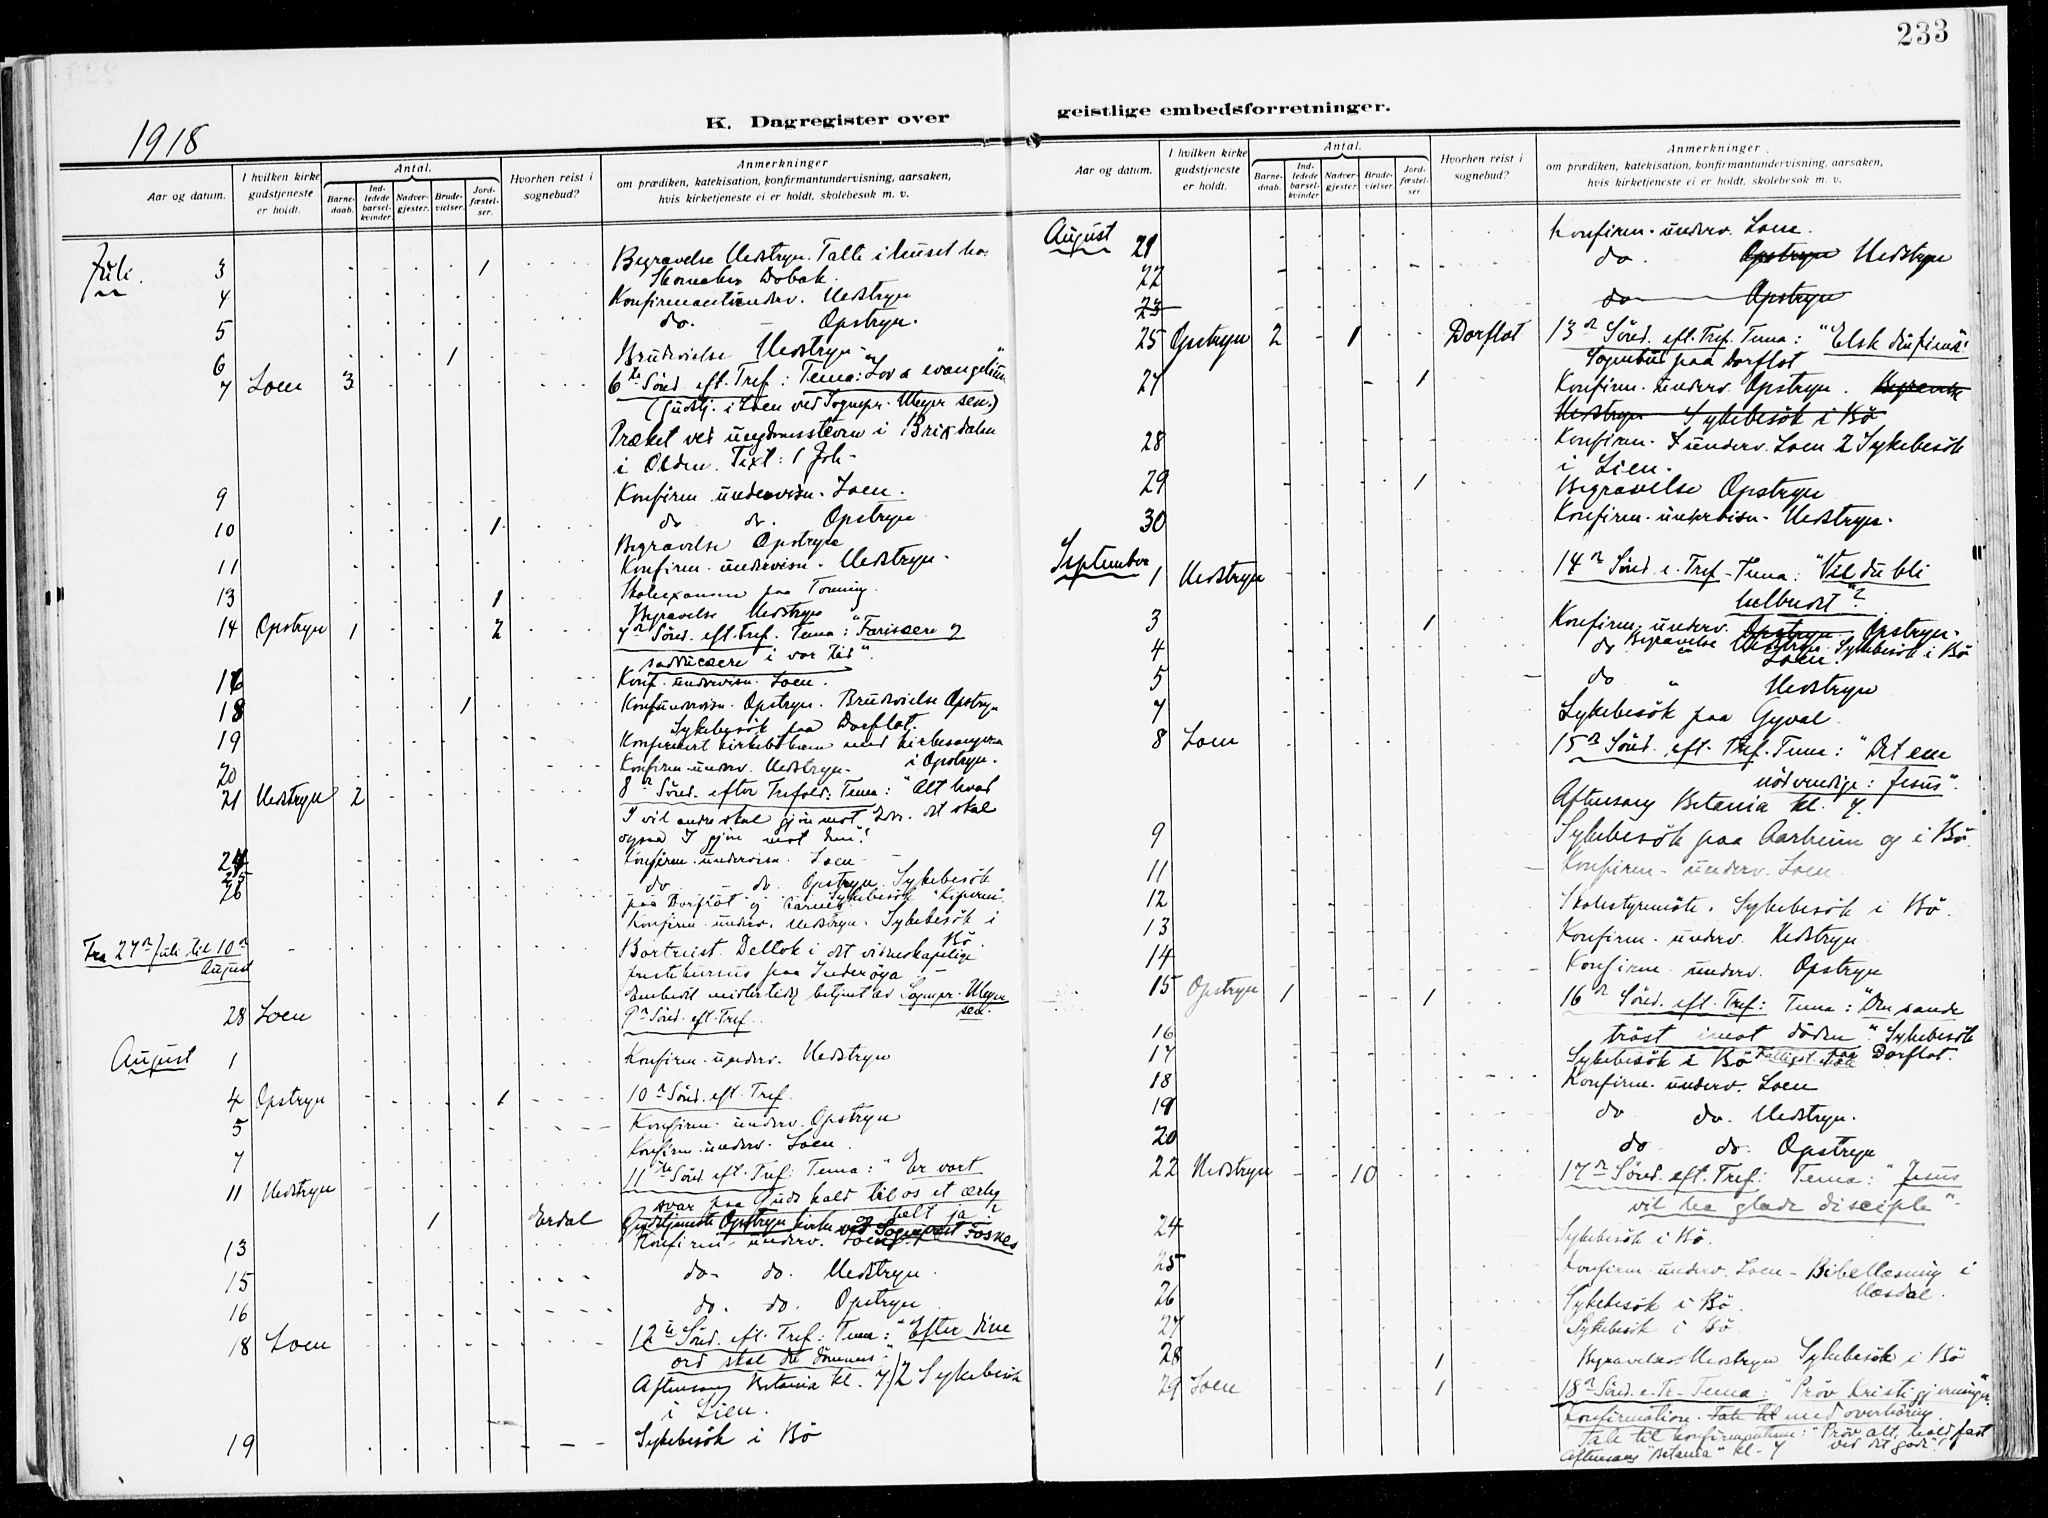 233
K. Dagregister over geistlige embedsforretninger.
1918
Aar og datum.
I hvilken kirke gudstjeneste er holdt.
Antal.
Barne-daab.
Ind-ledede barsel-kvinder.
Nadver-gjester.
Brude-vielser.
Jord-fæstel-ser.
Hvorhen reist i sognebud?
Anmerkninger
om prædiken, katekisation, konfirmantundervisning, aarsaken,
hvis kirketjeneste ei er holdt, skolebesøk m. v.
Juli. 3 1 Begravelse Nedstryn. Talte i huset hos
4 Konfirmantunderv. Nedstryn
5 do. – Opstryn.
6 1 Brudevielse Nedstryn
7 Loen 3 6te Sönd. eft. Tref: Tema: Lov og evangelium
(Gudstj. i Loen ved Sognepr. Meyer sen.)
Præket ved ungdomsstevne i Brixdalen
i Olden. Text: 1 Joh –
9 Konfirm undervisn. Loen.
10 1 do do. Opstryn
Begravelse Opstryn
11 Konfirm. undervisn. Nedstryn.
13 1 Skoleexamen paa Toning.
Begravelse Nedstryn
14 Opstryn 1 2 7n Sönd. eft. Tref. Tema: "Farisæere og
sadducæere i vor tid".
16 Konf. undervisn. Loen.
18 1 Konfundervisn. Opstryn. Brudevielse Opstryn
Sykebesök paa Dorflot.
19 Konferert kirkebökerne med kirkesangeren
i Opstryn.
20 Konfirm. underv. Nedstryn.
21 Nedstryn 2 8n Sönd. efter Trefold: Tema: "Alt hvad
I vil andre skal gjöre mot Eder. det skal
ogsaa I gjöre mot dem!
24 Konfirm. undervisn. Loen
25 do do. Opstryn. Sykebesök
paa Dorflot og Sykebesök
26 Konfirm. underv. Nedstryn. Sykebesök i
Bö.
Fra 27n Juli til 10n August – Bortreist. Deltok i det videnskapelige
prestekursus paa Inderöya –
Embedet midlertidig betjent av Sognepr. Meyer
sen.
28 Loen 9n Sönd. eft. Tref.
August 1 Konfirm. underv. Nedstryn
4 Opstryn 1 10n Sönd. eft. Tref.
5 Konfirm. underv. Opstryn
7 Konfirm. underv. Loen.
11 Nedstryn 11te Sönd. eft. Tref: Tema: "Er vort
svar paa Guds kald til os et ærlig
og helt ja?
1 Erdal Gudstjeneste Opstryn kirke ved Sogneprest Fosnes
13 Konfirm. underv. Loen
15 do. do. Nedstryn.
16 do. do. Opstryn.
18 Loen 12te Sönd. eft. Tref: Tema: "Efter dine
ord skal du dömmes."
Aftensang Betania kl. 7/2 Sykebesök
i Lien.
19 Sykebesök i Bö
Aar og datum.
I hvilken kirke gudstjeneste er holdt.
Antal.
Barne-daab.
Ind-ledede barsel-kvinder
Nadver-gjester.
Brude-vielser.
Jord-fæstel-ser.
Hvorhen reist i sognebud?
Anmerkninger.
om prædiken, katekisation, konfirmantundervisning, aarsaken,
hvis kirketjeneste ei er holdt, skolebesøk m. v.
August 21 Konfirm. underv. Loen.
22 do. Opstryn Nedstryn
23 do Opstryn
25 Opstryn 2 1 Dorflot 13n Sönd. eft. Tref. Tema: "Elsk din fiende!"
Sognebud paa Dorflot
27 1 Konfirm. underv. Opstryn. Begravelse
Nedstryn Sykebesök i Bö
28 Konfirm. underv. Loen 2 Sykebesök
i Lien.
29 1 Begravelse Opstryn
30 Konfirm. undervisn. Nedstryn.
September 1 Nedstryn 14n Sönd. e. Tref. Tema: "Vil du bli
helbredet"?
3 1 Konfirm. underv. Opstryn Opstryn.
Begravelse Nedstryn. Sykebesök i Bö
4 do " Loen.
5 do " Nedstryn
7 Sykebesök paa Gyval.
8 Loen 15n Sönd. eft. Tref. Tema: "Det ene
nödvendige: Jesus".
Aftensang Betania kl. 7.
9 Sykebesök paa Aarheim og i Bö.
11 Konfirm. underv. Loen.
12 Skolestyremöte. Sykebesök i Bö.
13 Konfirm. underv. Nedstryn
14 Konfirm. underv. Opstryn
15 Opstryn 1 1 16n Sönd. eft. Tref: Tema: "Den sande
tröst imot döden". Sykebesök
paa Dorflot.
16
17 Sykebesök i Bö
18 Konfirm. underv. Loen
19 do do. Nedstryn.
20 do do. Opstryn
22 Nedstryn 10 17n Sönd. eft. Tref: Tema: "Jesus
vil ha glade disciple".
24 Sykebesök i Bö.
25 Konfirm. underv. Loen – Bibellæsning i
26 Sykebesök i Bö.
27 Sykebesök i Bö
28 1 Begravelse Nedstryn Sykebesök i Bö
29 Loen 1 18n Sönd. e. Tr. Tema: "Pröv Kristi gjerninger"
Konfirmation. Tale til med overhöring.
Tale til konfirmanterne: "Pröv alt, hold fast
ved det gode"!
Aftensang "Betania" kl. 7